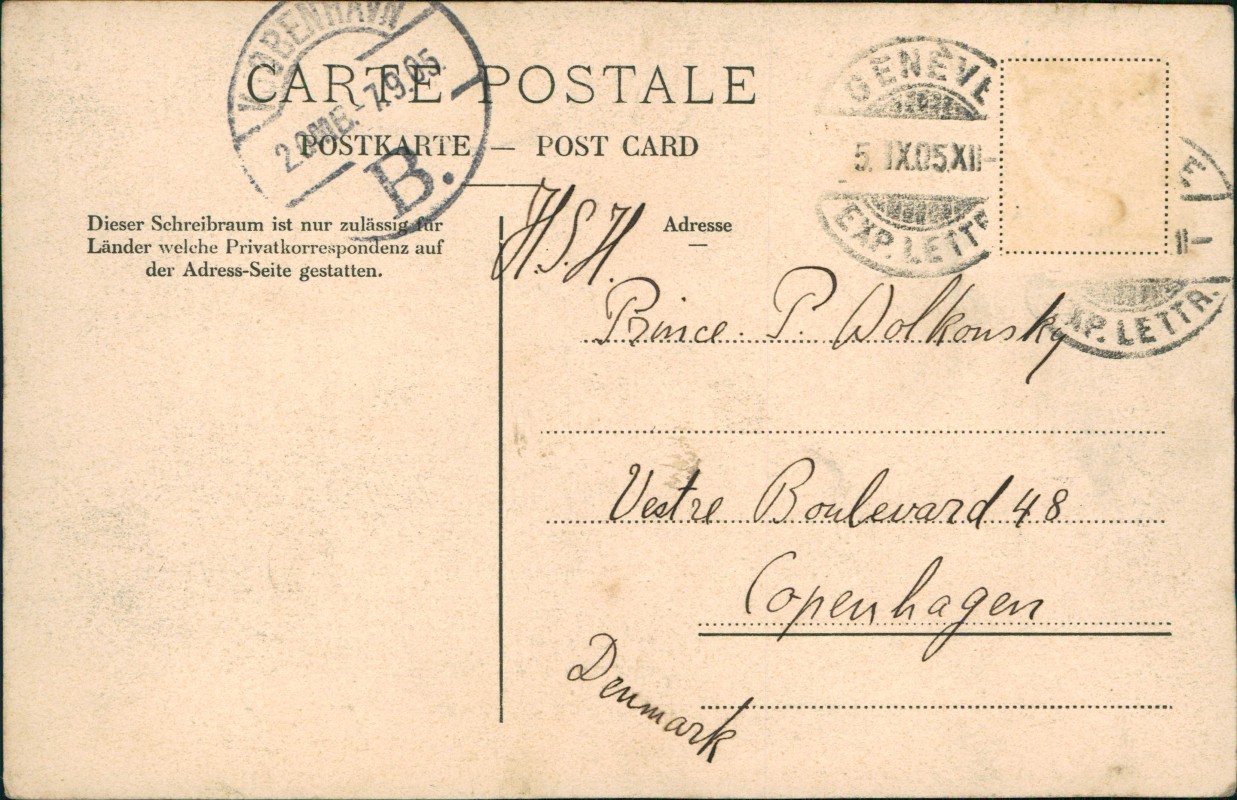 KØBENHAVN
7.9.05.
B.
CARTE POSTALE
POSTKARTE — POST CARD
GENÈVE
5. IX.05.XII-
EXP. LETTR
E.
II-
EXP. LETTR.
Dieser Schreibraum ist nur zulässig für
Länder welche Privatkorrespondenz auf
der Adress-Seite gestatten.
Adresse
H.S.H.
Prince P. Wolkonsky
Vestre Boulevard 48
Copenhagen
Denmark